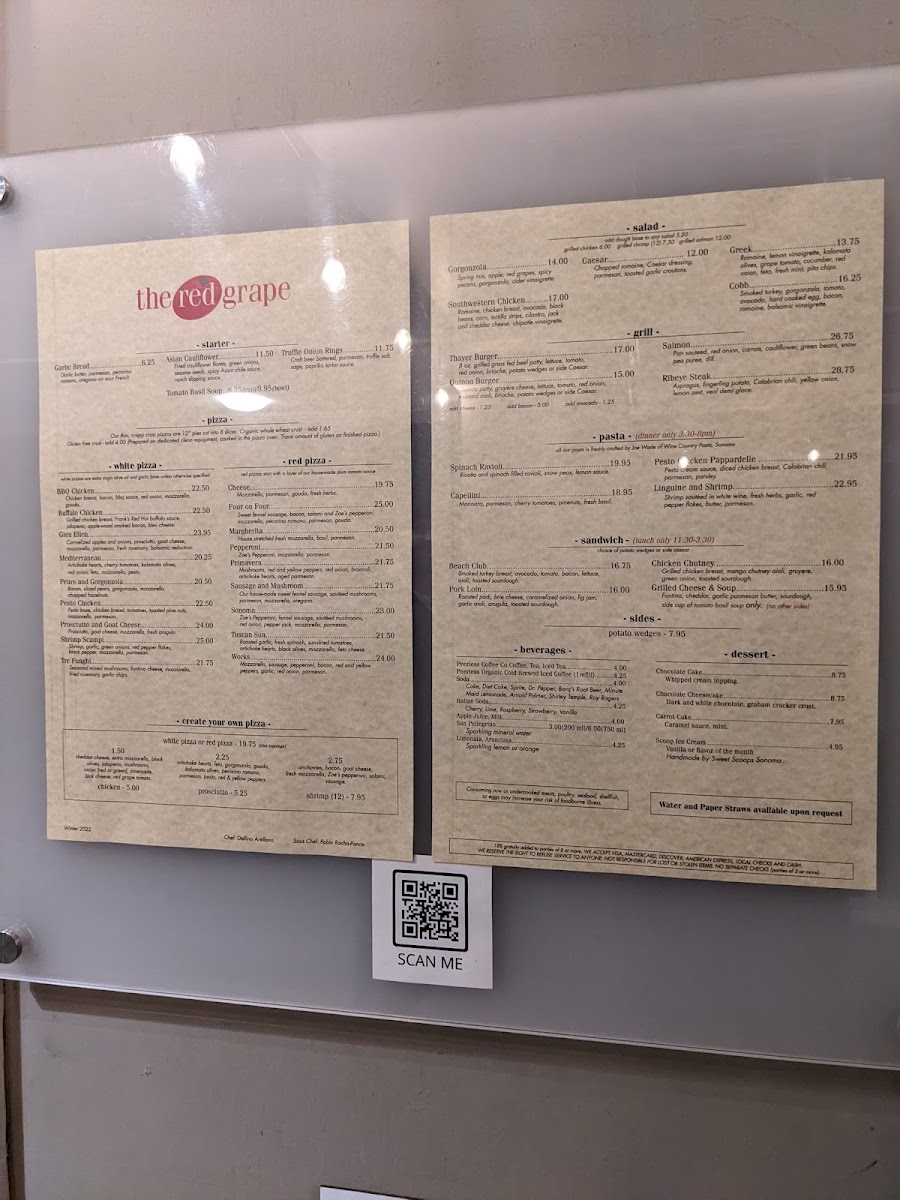 the red grape
- starter -
Garlic Bread 6.25
Garlic butter, parmesan, pecorino
romano, oregano on sour French
Asian Cauliflower 11.50
Fried cauliflower florets, green onions,
sesame seeds, spicy Asian chile sauce,
ranch dipping sauce.
Truffle Onion Rings 11.75
Craft beer battered, parmesan, truffle salt,
sage, paprika tartar sauce.
Tomato Basil Soup
- pizza -
Our thin, crispy crust pizzas are 12" pies cut into 8 slices. Organic whole wheat crust - add 1.65
Gluten free crust - add 4.00 (Prepared on dedicated clean equipment, cooked in the pizza oven. Trace amount of gluten on finished pizza.)
- white pizza -
white pizzas are extra virgin olive oil and garlic base unless otherwise specified
BBQ Chicken 22.50
Chicken breast, bacon, bbq sauce, red onion, mozzarella,
gouda.
Buffalo Chicken 22.50
Grilled chicken breast, Frank's Red Hot buffalo sauce,
jalapeno, applewood smoked bacon, bleu cheese.
Glen Ellen 23.95
Carmelized apples and onions, prosciutto, goat cheese,
mozzarella, parmesan, fresh rosemary, balsamic reduction.
Mediterranean 20.25
Artichoke hearts, cherry tomatoes, kalamata olives,
red onion, feta, mozzarella, pesto.
Pears and Gorgonzola 20.50
Bacon, sliced pears, gorgonzola, mozzarella,
chopped hazelnuts.
Pesto Chicken 22.50
Pesto base, chicken breast, tomatoes, toasted pine nuts,
mozzarella, parmesan.
Prosciutto and Goat Cheese 24.00
Prosciutto, goat cheese, mozzarella, fresh arugula.
Shrimp Scampi 25.00
Shrimp, garlic, green onions, red pepper flakes,
black pepper, mozzarella, parmesan.
Tre Funghi 21.75
Seasonal mixed mushrooms, fontina cheese, mozzarella,
fried rosemary, garlic chips.
- red pizza -
red pizzas start with a layer of our housemade plum tomato sauce
Cheese 19.75
Mozzarella, parmesan, gouda, fresh herbs.
Four on Four 25.00
Sweet fennel sausage, bacon, salami and Zoe's pepperoni,
mozzarella, pecorino romano, parmesan, gouda.
Margherita 20.50
House stretched fresh mozzarella, basil, parmesan.
Pepperoni 21.50
Zoe's Pepperoni, mozzarella, parmesan.
Primavera 21.75
Mushrooms, red and yellow peppers, red onion, broccoli,
artichoke hearts, aged parmesan.
Sausage and Mushroom 21.75
Our housemade sweet fennel sausage, sautéed mushrooms,
parmesan, mozzarella, oregano.
Sonoma 23.00
Zoe's Pepperoni, fennel sausage, sautéed mushrooms,
red onion, pepper jack, mozzarella, parmesan.
Tuscan Sun 21.50
Roasted garlic, fresh spinach, sundried tomatoes,
artichoke hearts, black olives, mozzarella, feta cheese.
Works 24.00
Mozzarella, sausage, pepperoni, bacon, red and yellow
peppers, garlic, red onion, parmesan.
- create your own pizza -
white pizza or red pizza - 19.75
1.50
cheddar cheese, extra mozzarella, black
olives, jalapeño, mushrooms,
onion (red or green), pineapple,
Jack cheese, red grape tomato.
chicken - 5.00
2.25
artichoke hearts, feta, gorgonzola, gouda,
kalamata olives, pecorino romano,
parmesan, pesto, red & yellow peppers
prosciutto - 5.25
2.75
anchovies, bacon, goat cheese,
fresh mozzarella, Zoe's pepperoni, salami,
sausage.
shrimp (12) - 7.95
Winter 2022
Chef: Delfino Arellano
Sous Chef: Pablo Rocha-Ponce
- salad -
add dough base to any salad 5.50
grilled chicken 6.00 grilled shrimp (12) 7.50 grilled salmon 12.00
Gorgonzola 14.00
Spring mix, apple, red grapes, spicy
pecans, gorgonzola, cider vinaigrette.
Caesar 12.00
Chopped romaine, Caesar dressing,
parmesan, toasted garlic croutons.
Greek 13.75
Romaine, lemon vinaigrette, kalamata
olives, grape tomato, cucumber, red
onion, feta, fresh mint, pita chips.
Southwestern Chicken 17.00
Romaine, chicken breast, avocado, black
beans, corn, tortilla strips, cilantro, jack
and cheddar cheese, chipotle vinaigrette.
Cobb 16.25
Smoked turkey, gorgonzola, tomato,
avocado, hard cooked egg, bacon,
romaine, balsamic vinaigrette.
- grill -
Thayer Burger 17.00
8 oz. grilled grass fed beef patty, lettuce, tomato,
red onion, brioche, potato wedges or side Caesar.
Quinoa Burger 15.00
patty, gruyère cheese, lettuce, tomato, red onion,
mustard aioli, brioche, potato wedges or side Caesar.
add cheese - 1.25 add bacon - 3.00 add avocado - 1.25
Salmon 26.75
Pan sauteed, red onion, carrots, cauliflower, green beans, snow
pea puree, dill.
Ribeye Steak 28.75
Aspragus, fingerling potato, Calabrian chili, yellow onion,
lemon zest, veal demi glace.
- pasta - (dinner only 3:30-8pm)
all our pasta is freshly crafted by Joe Wade of Wine Country Pasta, Sonoma
Spinach Ravioli 19.95
Ricotta and spinach filled ravioli, snow peas, lemon sauce.
Capellini 18.95
Marinara, parmesan, cherry tomatoes, pinenuts, fresh basil.
Pesto Chicken Pappardelle 21.95
Pesto cream sauce, diced chicken breast, Calabrian chili,
parmesan, parsley.
Linguine and Shrimp 22.95
Shrimp sautéed in white wine, fresh herbs, garlic, red
pepper flakes, butter, parmesan.
- sandwich - (lunch only 11:30-3:30)
choice of potato wedges or side caesar
Beach Club 16.75
Smoked turkey breast, avocado, tomato, bacon, lettuce,
aioli, toasted sourdough
Pork Loin 16.00
Roasted pork, brie cheese, caramelized onion, fig jam,
garlic aioli, arugula, toasted sourdough.
Chicken Chutney 16.00
Grilled chicken breast, mango chutney aioli, gruyere,
green onion, toasted sourdough.
Grilled Cheese & Soup 15.95
Fontina, cheddar, garlic parmesan butter, sourdough,
side cup of tomato basil soup only. (no other sides)
- sides -
potato wedges - 7.95
- beverages -
Peerless Coffee Co. Coffee, Tea, Iced Tea 4.00
Peerless Organic Cold Brewed Iced Coffee (1 refill) 4.25
Soda 4.00
Coke, Diet Coke, Sprite, Dr. Pepper, Barq's Root Beer, Minute
Maid Lemonade, Arnold Palmer, Shirley Temple, Roy Rogers
Italian Soda 4.25
Cherry, Lime, Raspberry, Strawberry, Vanilla
Apple Juice, Milk 4.00
San Pellegrino 3.00(200 ml)/6.00(750 ml)
Sparkling mineral water
Limonata, Aranciata 4.25
Sparkling lemon or orange
- dessert -
Chocolate Cake 8.75
Whipped cream topping.
Chocolate Cheesecake 8.75
Dark and white chocolate, graham cracker crust.
Carrot Cake 7.95
Caramel sauce, mint.
Scoop Ice Cream 4.95
Vanilla or flavor of the month
Handmade by Sweet Scoops Sonoma.
Consuming raw or undercooked meats, poultry, seafood, shellfish,
or eggs may increase your risk of foodborne illness.
Water and Paper Straws available upon request
18% gratuity added to parties of 6 or more. WE ACCEPT VISA, MASTERCARD, DISCOVER, AMERICAN EXPRESS, LOCAL CHECKS AND CASH.
WE RESERVE THE RIGHT TO REFUSE SERVICE TO ANYONE. NOT RESPONSIBLE FOR LOST OR STOLEN ITEMS. NO SEPARATE CHECKS (parties of 5 or more).
SCAN ME